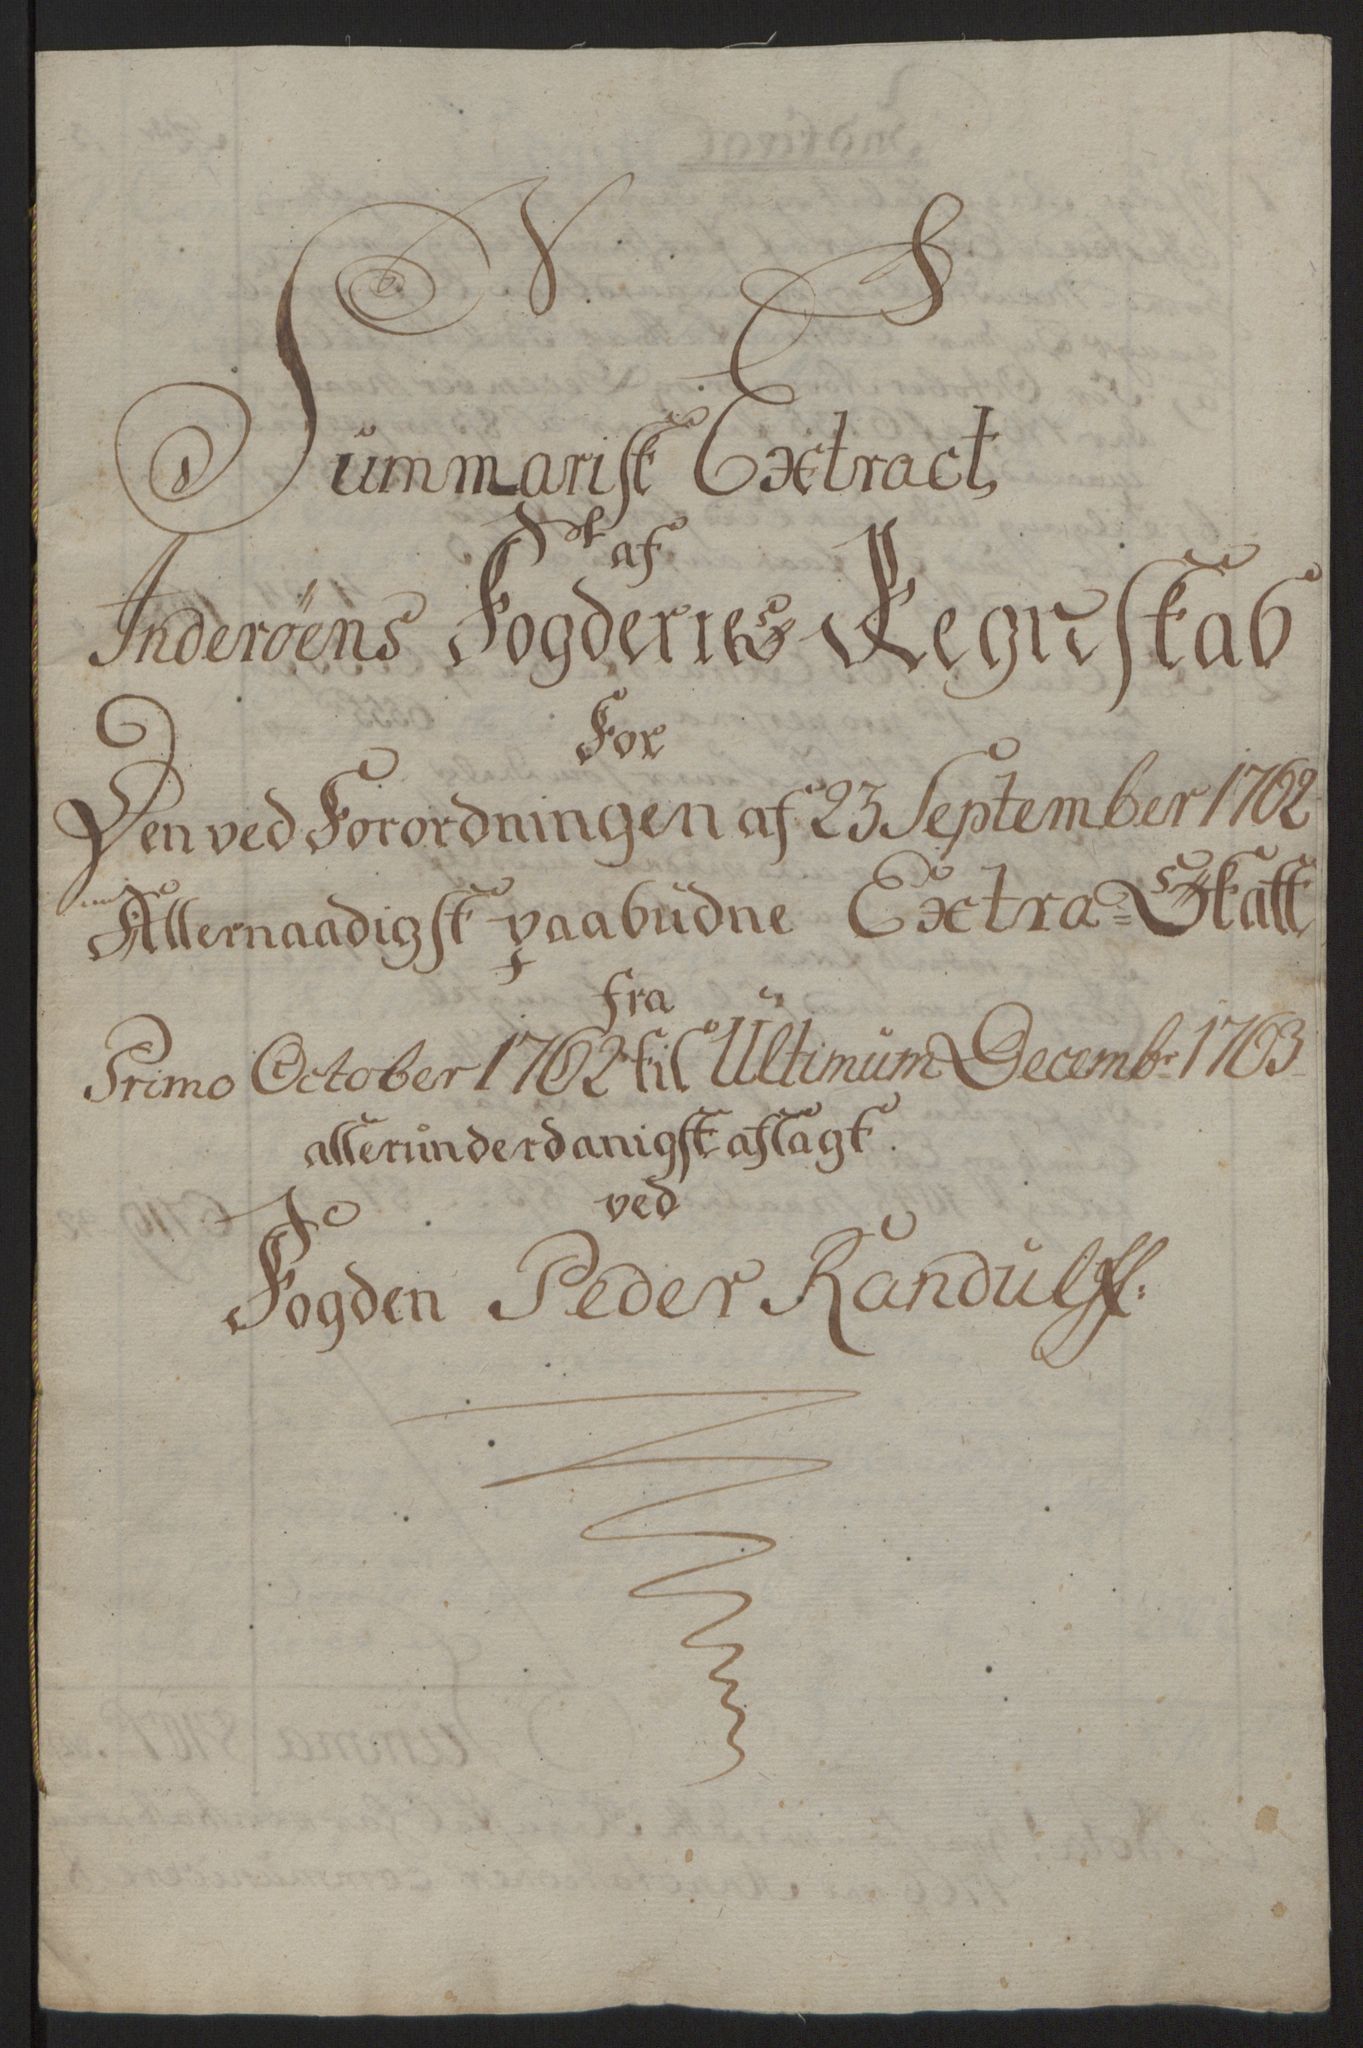 Summarisk Extract
af
Inderøens Fogderies Regnskab
For
Den ved Forordningen af 23 September 1762
Allernaadigst paabudne Extra=Skatt
fra
Primo October 1762 til Ultimum Decembr 1763
allerunderdanigst aflagt
ved
Fogden Peder Randulff.